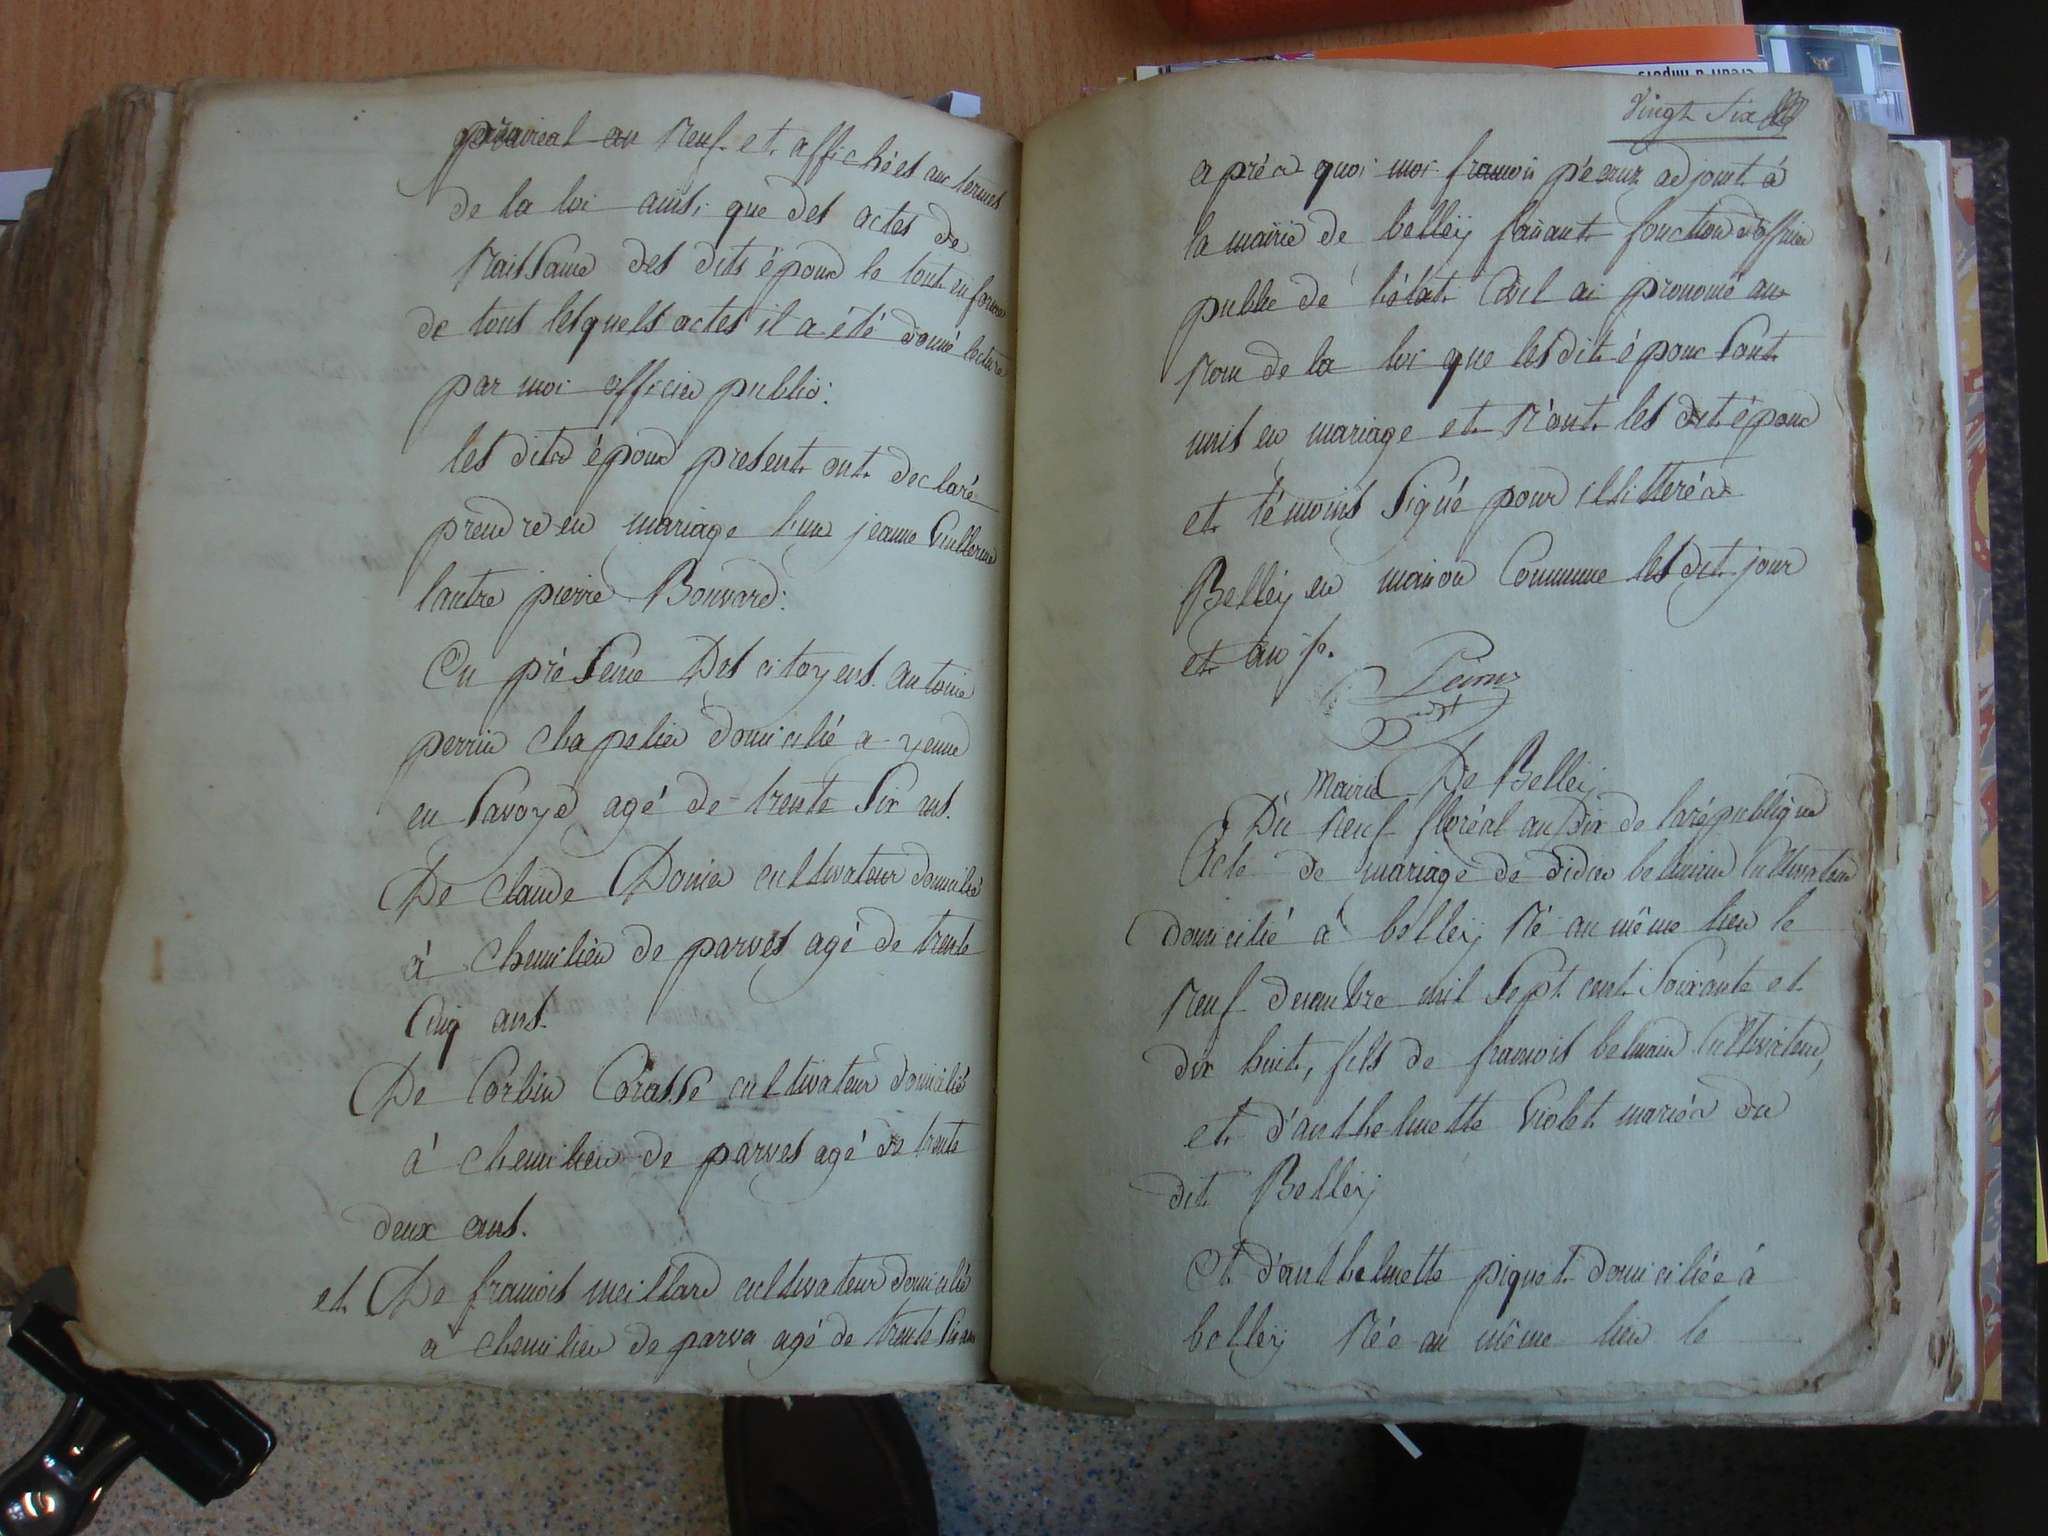 prairial an neuf et affichées aux termes
de la loi ainsi que des actes de
Naissance des dits époux le tout en forme
de tous lesquels actes il a été donné lecture
par moi officier public:
les dits époux present ont declaré
prendre en mariage lun jeanne Vuillerme
lautre pierre Bonvard:
En présence Des citoyens antoine
perrin chapelier domicilié a yenne
en Savoye agé de trente Six ans.
De claude Domer cultivateur domicilié
à chemilieu de parves agé de trente
Cinq ans.
De Corbin Corasse cultivateur domicilié
à chemilieu de parves agé de trente
deux ans.
et De francois meillard cultivateur domicilié
a chemilieu de parves agé de trente Six ans
Vingt Six
après quoi moi francois adjoint à
la mairie de belleÿ faisant fonction d'officier
public de l'état Civil ai prononcé au
Nom de la loi que lesdit époux Sont
unis en mariage et N'ont les dit époux
et témoins Signé pour illitterés
Belleÿ en maison Commune les dit jour
et an p.
adjt
Mairie De Belleÿ
Du Neuf floréal an Dix de la république
Acte de mariage de didier belmain Cultivateur
domicilié à belleÿ Né au même lieu le
Neuf decembre mil Sept cent Soixante et
dix huit, fils de francois belmain Cultivateur,
et d'anthelmette Violet mariés du
dit Belleÿ
Et d'anthelmette piquet domiciliée à
belleÿ Née au même lieu le